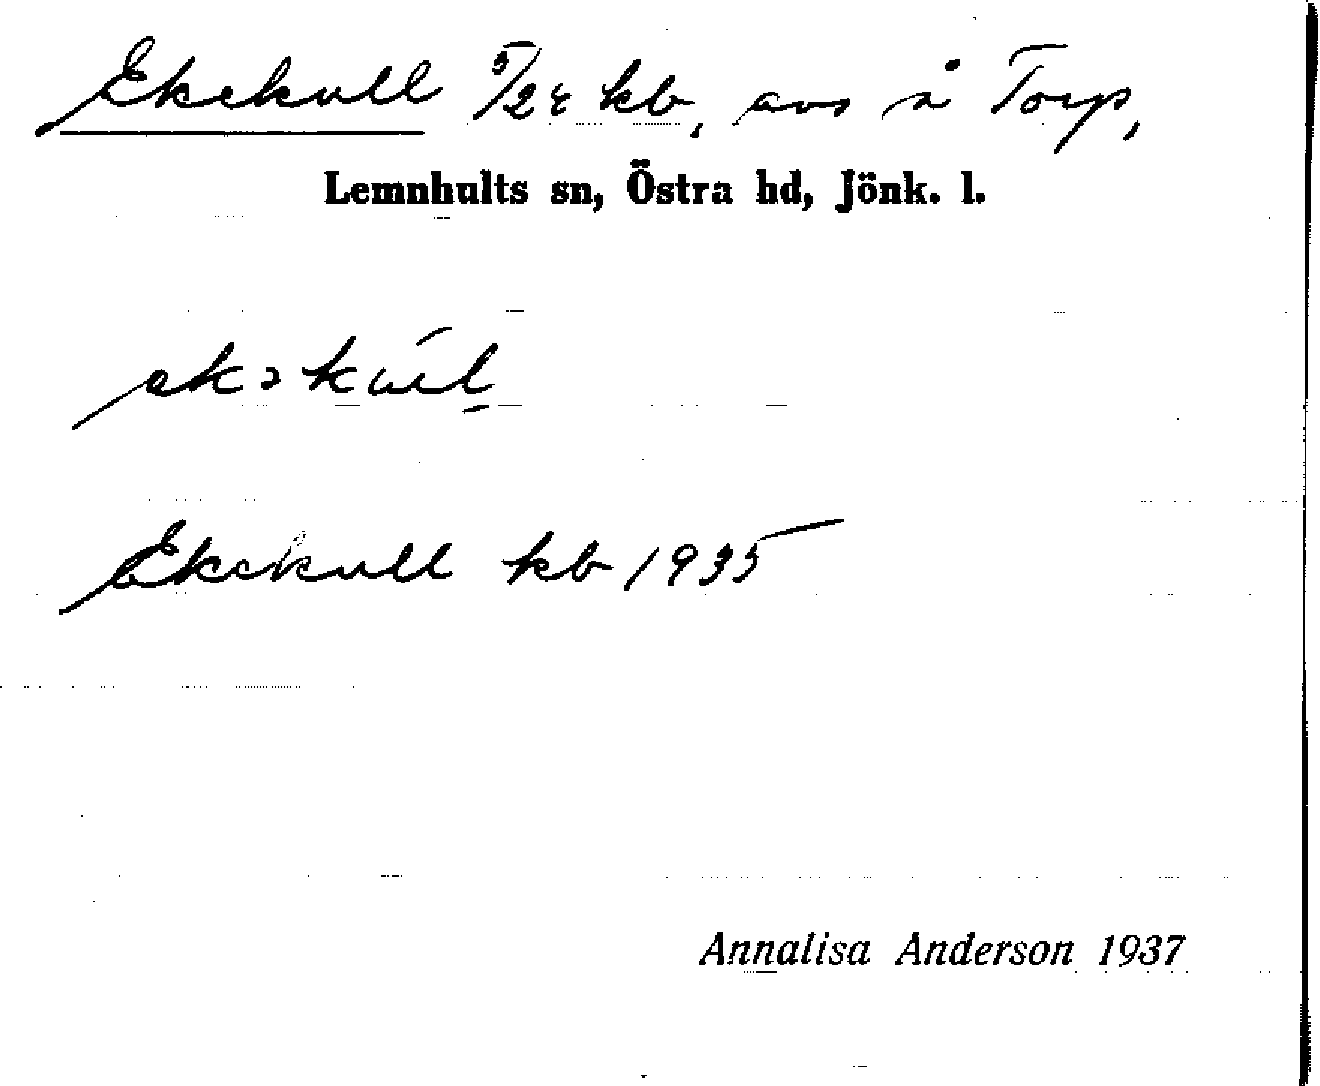 Ekekull 5/24 kb, avs å Torp,
Lemnhults sn, Östra hd, Jönk. l.
Ekekull kb 1935
Annalisa Anderson 1937